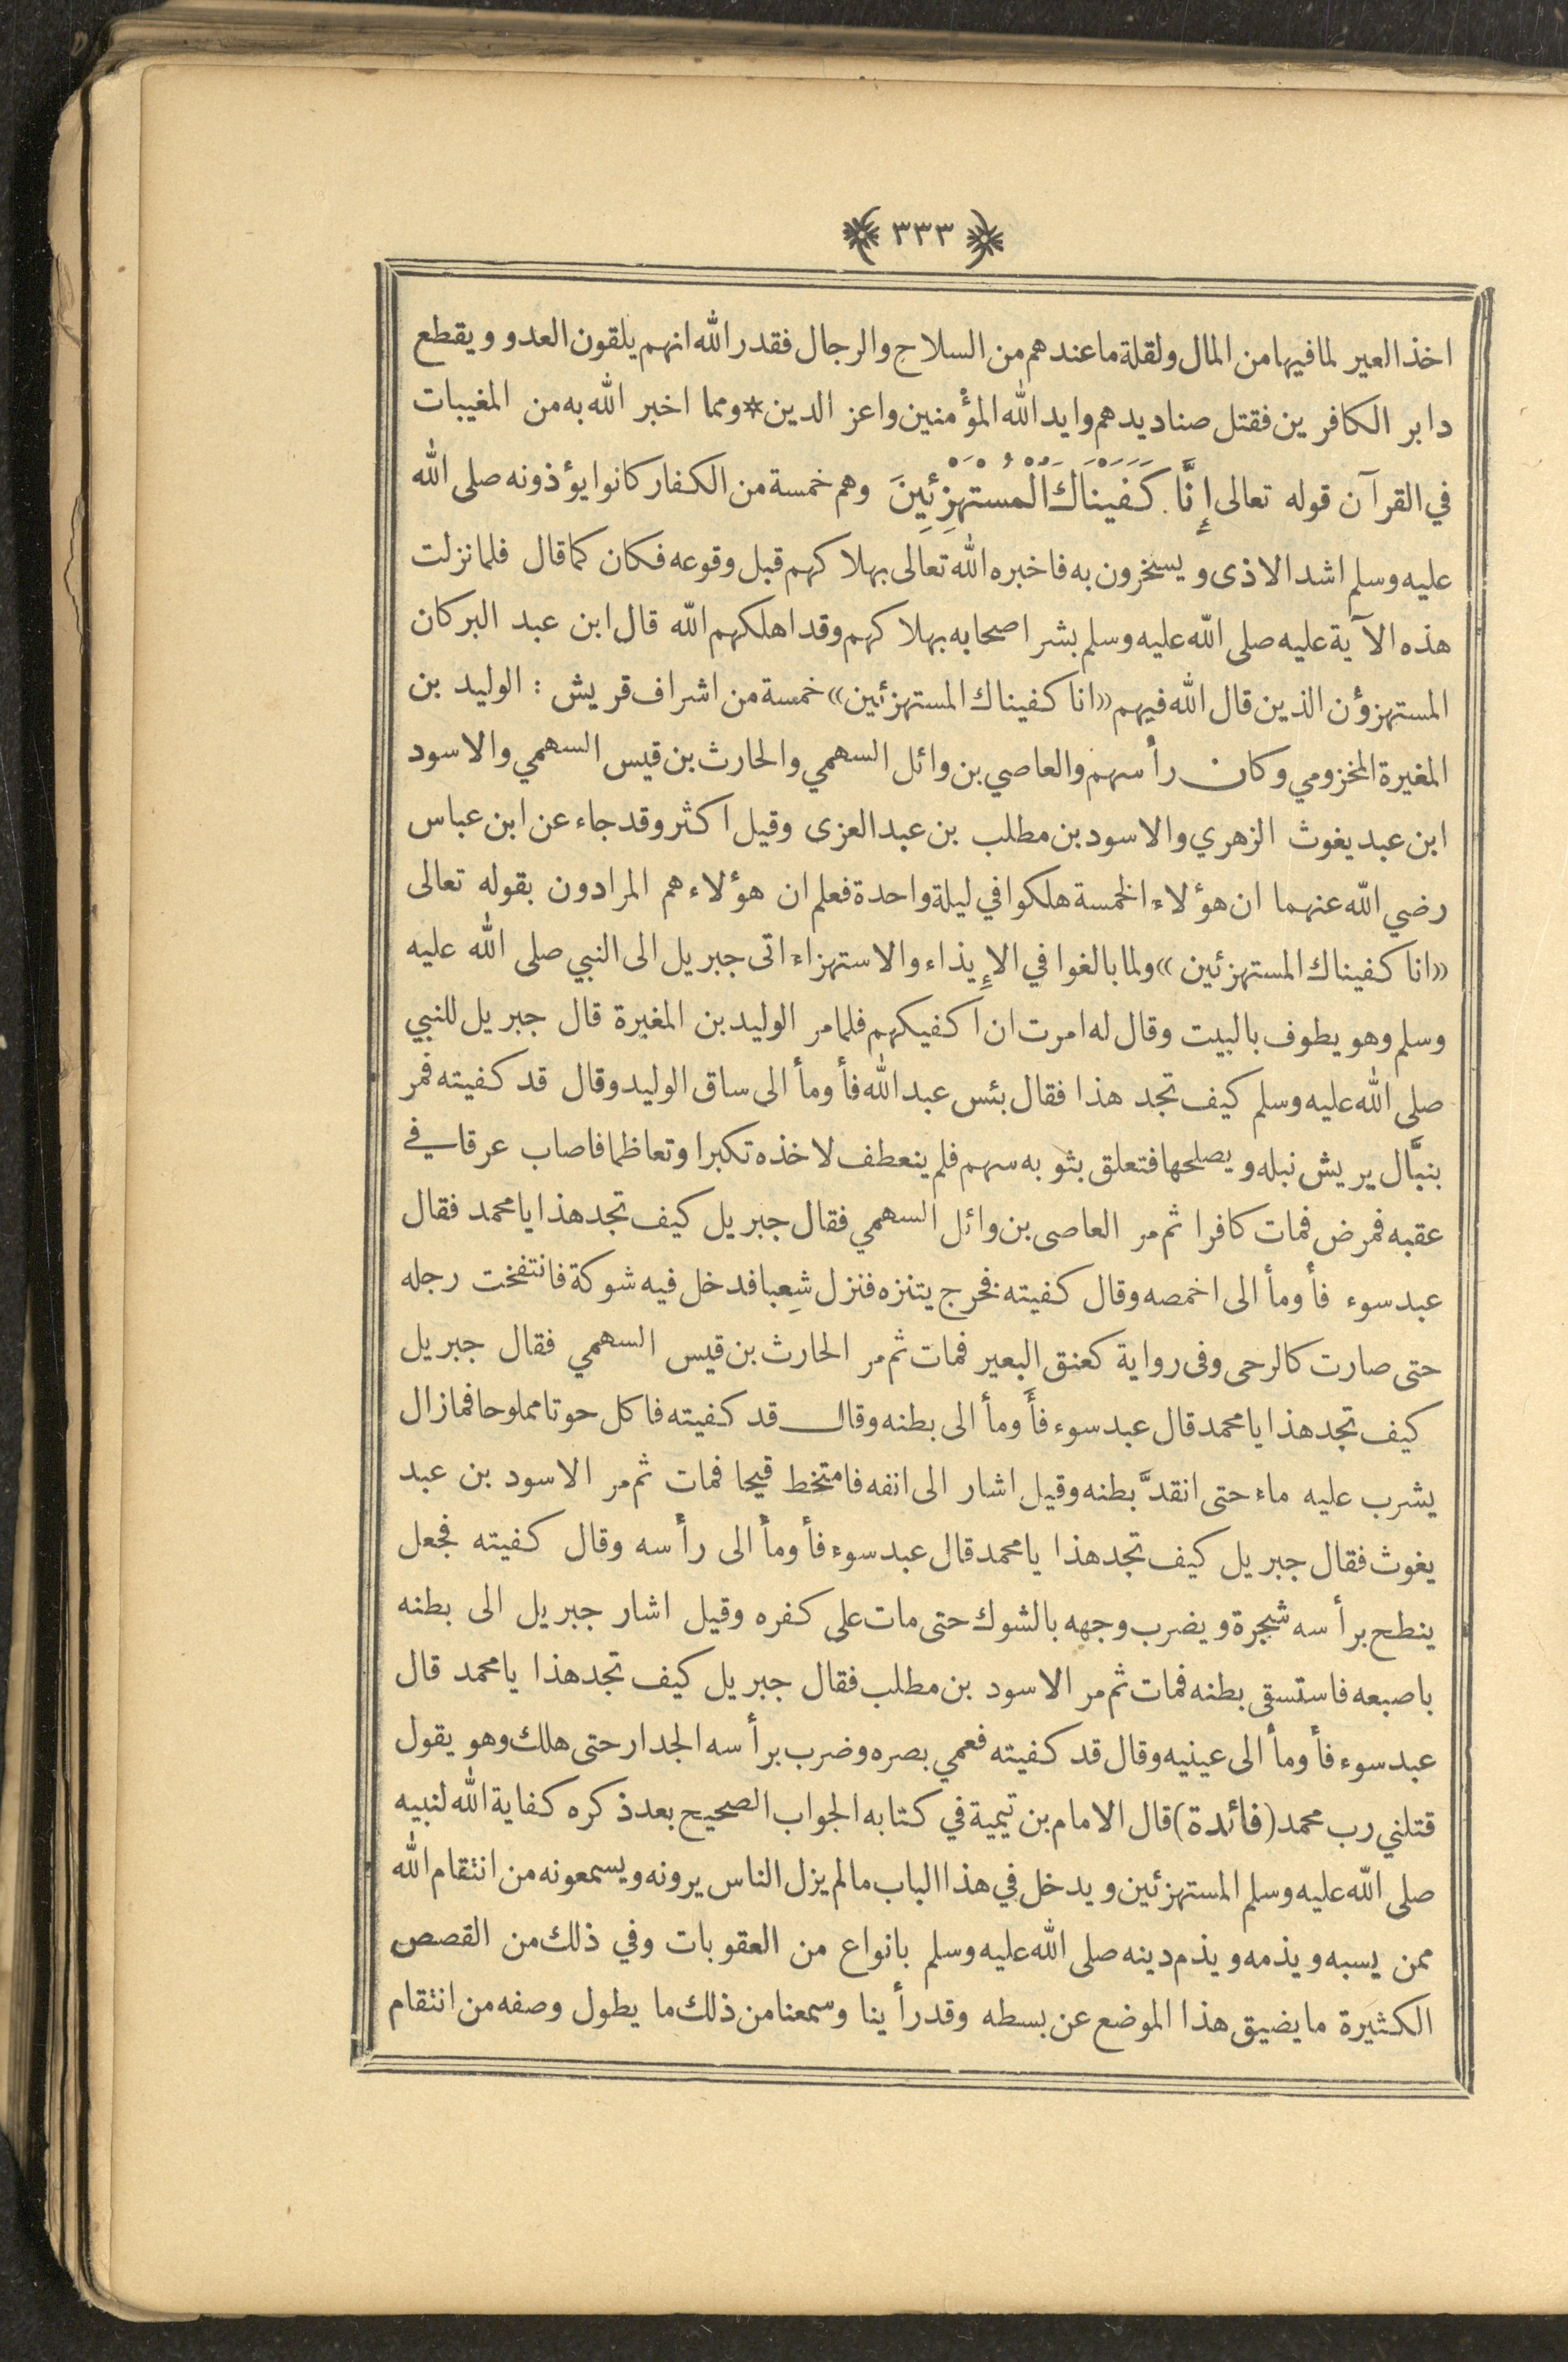 ﴿ ٣٣٣ ﴾
اخذ العير لما فيها من المال ولقلة ما عندهم من السلاح والرجال فقدر الله انهم يلقون العدو ويقطع
دابر الكافرين فقتل صناديدهم وايد الله المؤمنين واعز الدين * ومما اخبر الله به من المغيبات
في القرآن قوله تعالى إِنَّا كَفَيْنَاكَ الْمُسْتَهْزِئِينَ وهم خمسة من الكفار كانوا يؤذونه صلى الله
عليه وسلم اشد الاذى ويسخرون به فاخبره الله تعالى بهلاكهم قبل وقوعه فكان كما قال فلما نزلت
هذه الآية عليه صلى الله عليه وسلم بشر اصحابه بهلاكهم وقد اهلكهم الله قال ابن عبد البر كان
المستهزؤن الذين قال الله فيهم «انا كفيناك المستهزئين» خمسة من اشراف قريش : الوليد بن
المغيرة المخزومي وكان رأسهم والعاصي بن وائل السهمي والحارث بن قيس السهمي والاسود
ابن عبد يغوث الزهري والاسود بن مطلب بن عبد العزى وقيل اكثر وقد جاء عن ابن عباس
رضي الله عنهما ان هؤلاء الخمسة هلكوا في ليلة واحدة فعلم ان هؤلاء هم المرادون بقوله تعالى
«انا كفيناك المستهزئين» ولما بالغوا في الإيذاء والاستهزاء اتى جبريل الى النبي صلى الله عليه
وسلم وهو يطوف بالبيت وقال له امرت ان اكفيكهم فلما مر الوليد بن المغيرة قال جبريل للنبي
صلى الله عليه وسلم كيف تجد هذا فقال بئس عبد الله فأومأ الى ساق الوليد وقال قد كفيته فمر
بنبَّال يريش نبله ويصلحها فتعلق بثوبه سهم فلم ينعطف لاخذه تكبرا وتعاظما فاصاب عرقا في
عقبه فمرض فمات كافرا ثم مر العاصى بن وائل السهمي فقال جبريل كيف تجد هذا يا محمد فقال
عبد سوء فأومأ الى اخمصه وقال كفيته فخرج يتنزه فنزل شِعبا فدخل فيه شوكة فانتفخت رجله
حتى صارت كالرحى وفى رواية كعنق البعير فمات ثم مر الحارث بن قيس السهمي فقال جبريل
كيف تجد هذا يا محمد قال عبد سوء فأَومأ الى بطنه وقال قد كفيته فاكل حوتا مملوحا فما زال
يشرب عليه ماء حتى انقدَّ بطنه وقيل اشار الى انفه فامتخط قيحا فمات ثم مر الاسود بن عبد
يغوث فقال جبريل كيف تجد هذا يا محمد قال عبد سوء فأومأ الى رأسه وقال كفيته فجعل
ينطح برأسه شجرة ويضرب وجهه بالشوك حتى مات على كفره وقيل اشار جبريل الى بطنه
باصبعه فاستسقى بطنه فمات ثم مر الاسود بن مطلب فقال جبريل كيف تجد هذا يا محمد قال
عبد سوء فأومأ الى عينيه وقال قد كفيته فعمي بصره وضرب برأسه الجدار حتى هلك وهو يقول
قتلني رب محمد (فائدة) قال الامام بن تيمية في كتابه الجواب الصحيح بعد ذكره كفاية الله لنبيه
صلى الله عليه وسلم المستهزئين ويدخل في هذا الباب ما لم يزل الناس يرونه ويسمعونه من انتقام الله
ممن يسبه ويذمه ويذم دينه صلى الله عليه وسلم بانواع من العقوبات وفي ذلك من القصص
الكثيرة ما يضيق هذا الموضع عن بسطه وقد رأينا وسمعنا من ذلك ما يطول وصفه من انتقام